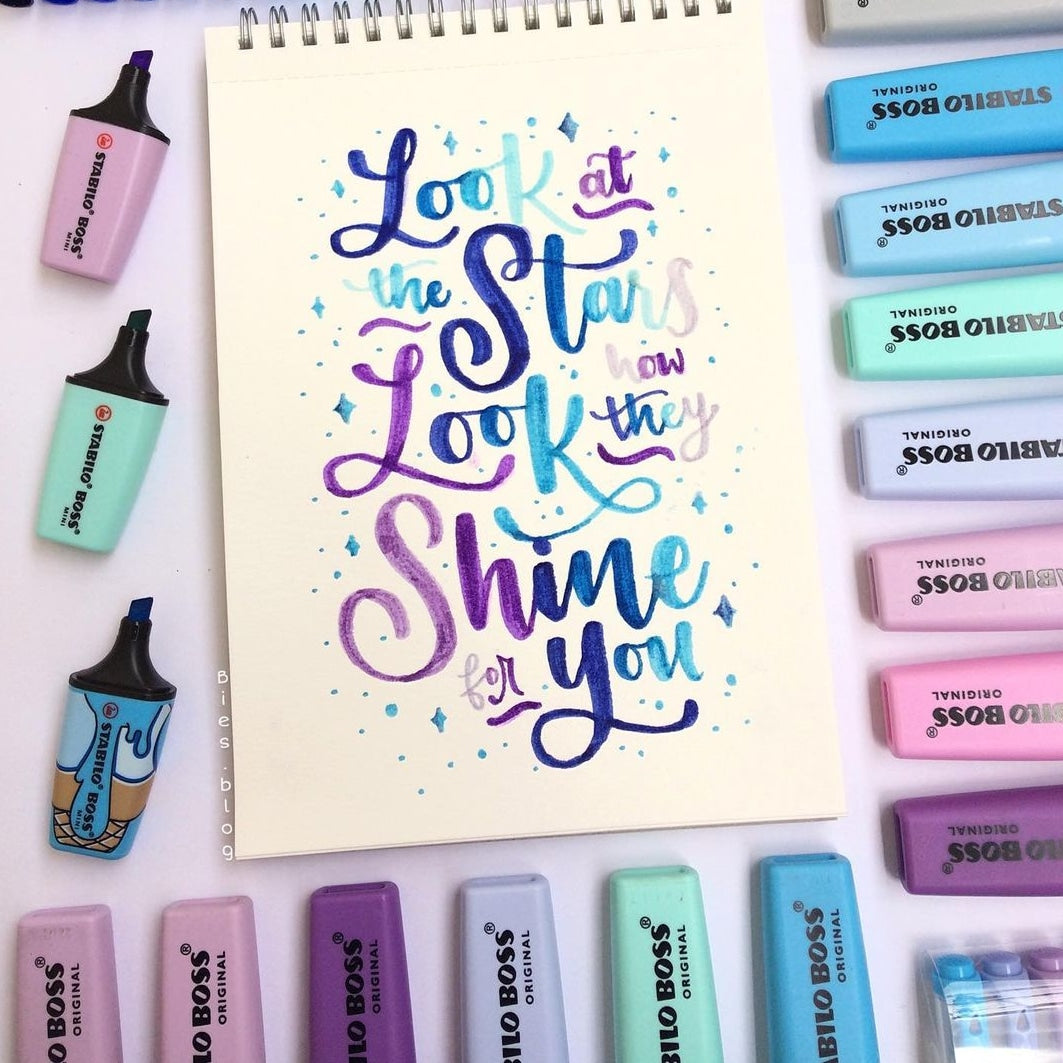 Look at
the Stars
Look how
they
Shine
for you
Bies.blog
STABILO® BOSS®
MINI
STABILO® BOSS®
MINI
STABILO® BOSS®
MINI
STABILO BOSS®
ORIGINAL
STABILO BOSS®
ORIGINAL
STABILO BOSS®
ORIGINAL
STABILO BOSS®
ORIGINAL
STABILO BOSS®
ORIGINAL
STABILO BOSS®
ORIGINAL
STABILO BOSS®
ORIGINAL
LO BOSS®
ORIGINAL
ILO BOSS®
ORIGINAL
LO BOSS®
ORIGINAL
BILO BOSS®
ORIGINAL
BILO BOSS®
ORIGINAL
ABILO BOSS®
ORIGINAL